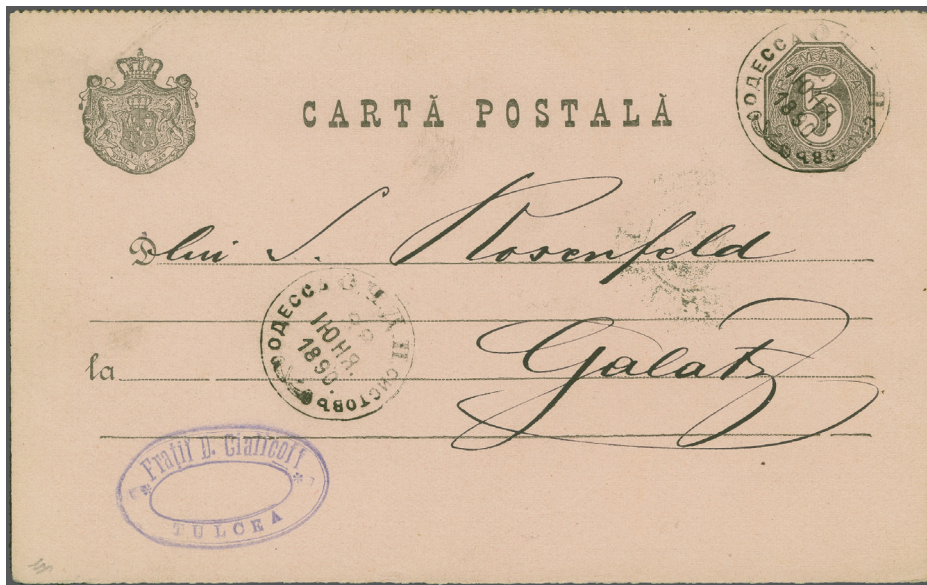 CARTĂ POSTALĂ
ROMANIA
5
ОДЕССА СИСТОВЪ
ІЮНЯ
1890
Dlui S. Rosenfeld
ОДЕССА СИСТОВЪ
ІЮНЯ.
1890.
la Galatz
Frații D. Cialicoff
TULCEA